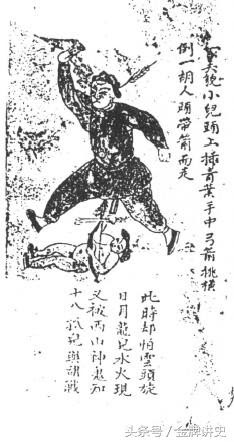 貌小兒頭上插青葉手中弓箭挑橫
倒一胡人頭帶箭而走
此時却怕雲頭旋
日月龍兒水火現
又被两山神鬼知
十八孤兒與胡戰
头条号 / 金牌讲史